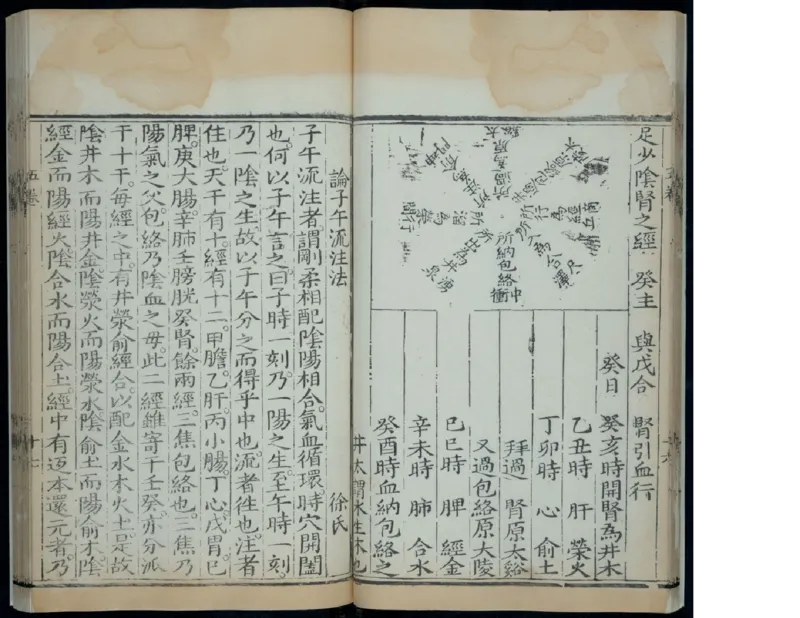 足少陰腎之經 癸主 與戊合 腎引血行
癸日 癸亥時開腎為井木
乙丑時 肝 榮火
丁卯時 心 俞土
拜過 腎原太谿
又過包絡原大陵
己巳時 脾 經金
辛未時 肺 合水
癸酉時血納包絡之
所納包絡中衝
論子午流注法 徐氏
子午流注者謂剛柔相配陰陽相合氣血循環時穴開闔
也何以子午言之曰子時一刻乃一陽之生至午時一刻
乃一陰之生故以子午分之而得乎中也流者往也注者
住也天干有十經有十二甲膽乙肝丙小腸丁心戊胃己
脾庚大腸辛肺壬膀胱癸腎餘兩經三焦包絡也三焦乃
陽氣之父包絡乃陰血之母此二經雖寄于壬癸亦分派
于十干每經之中有井滎俞經合以配金水木火土是故
陰井木而陽井金陰滎火而陽滎水陰俞土而陽俞木陰
經金而陽經火陰合水而陽合土經中有返本還元者乃
五卷 十七